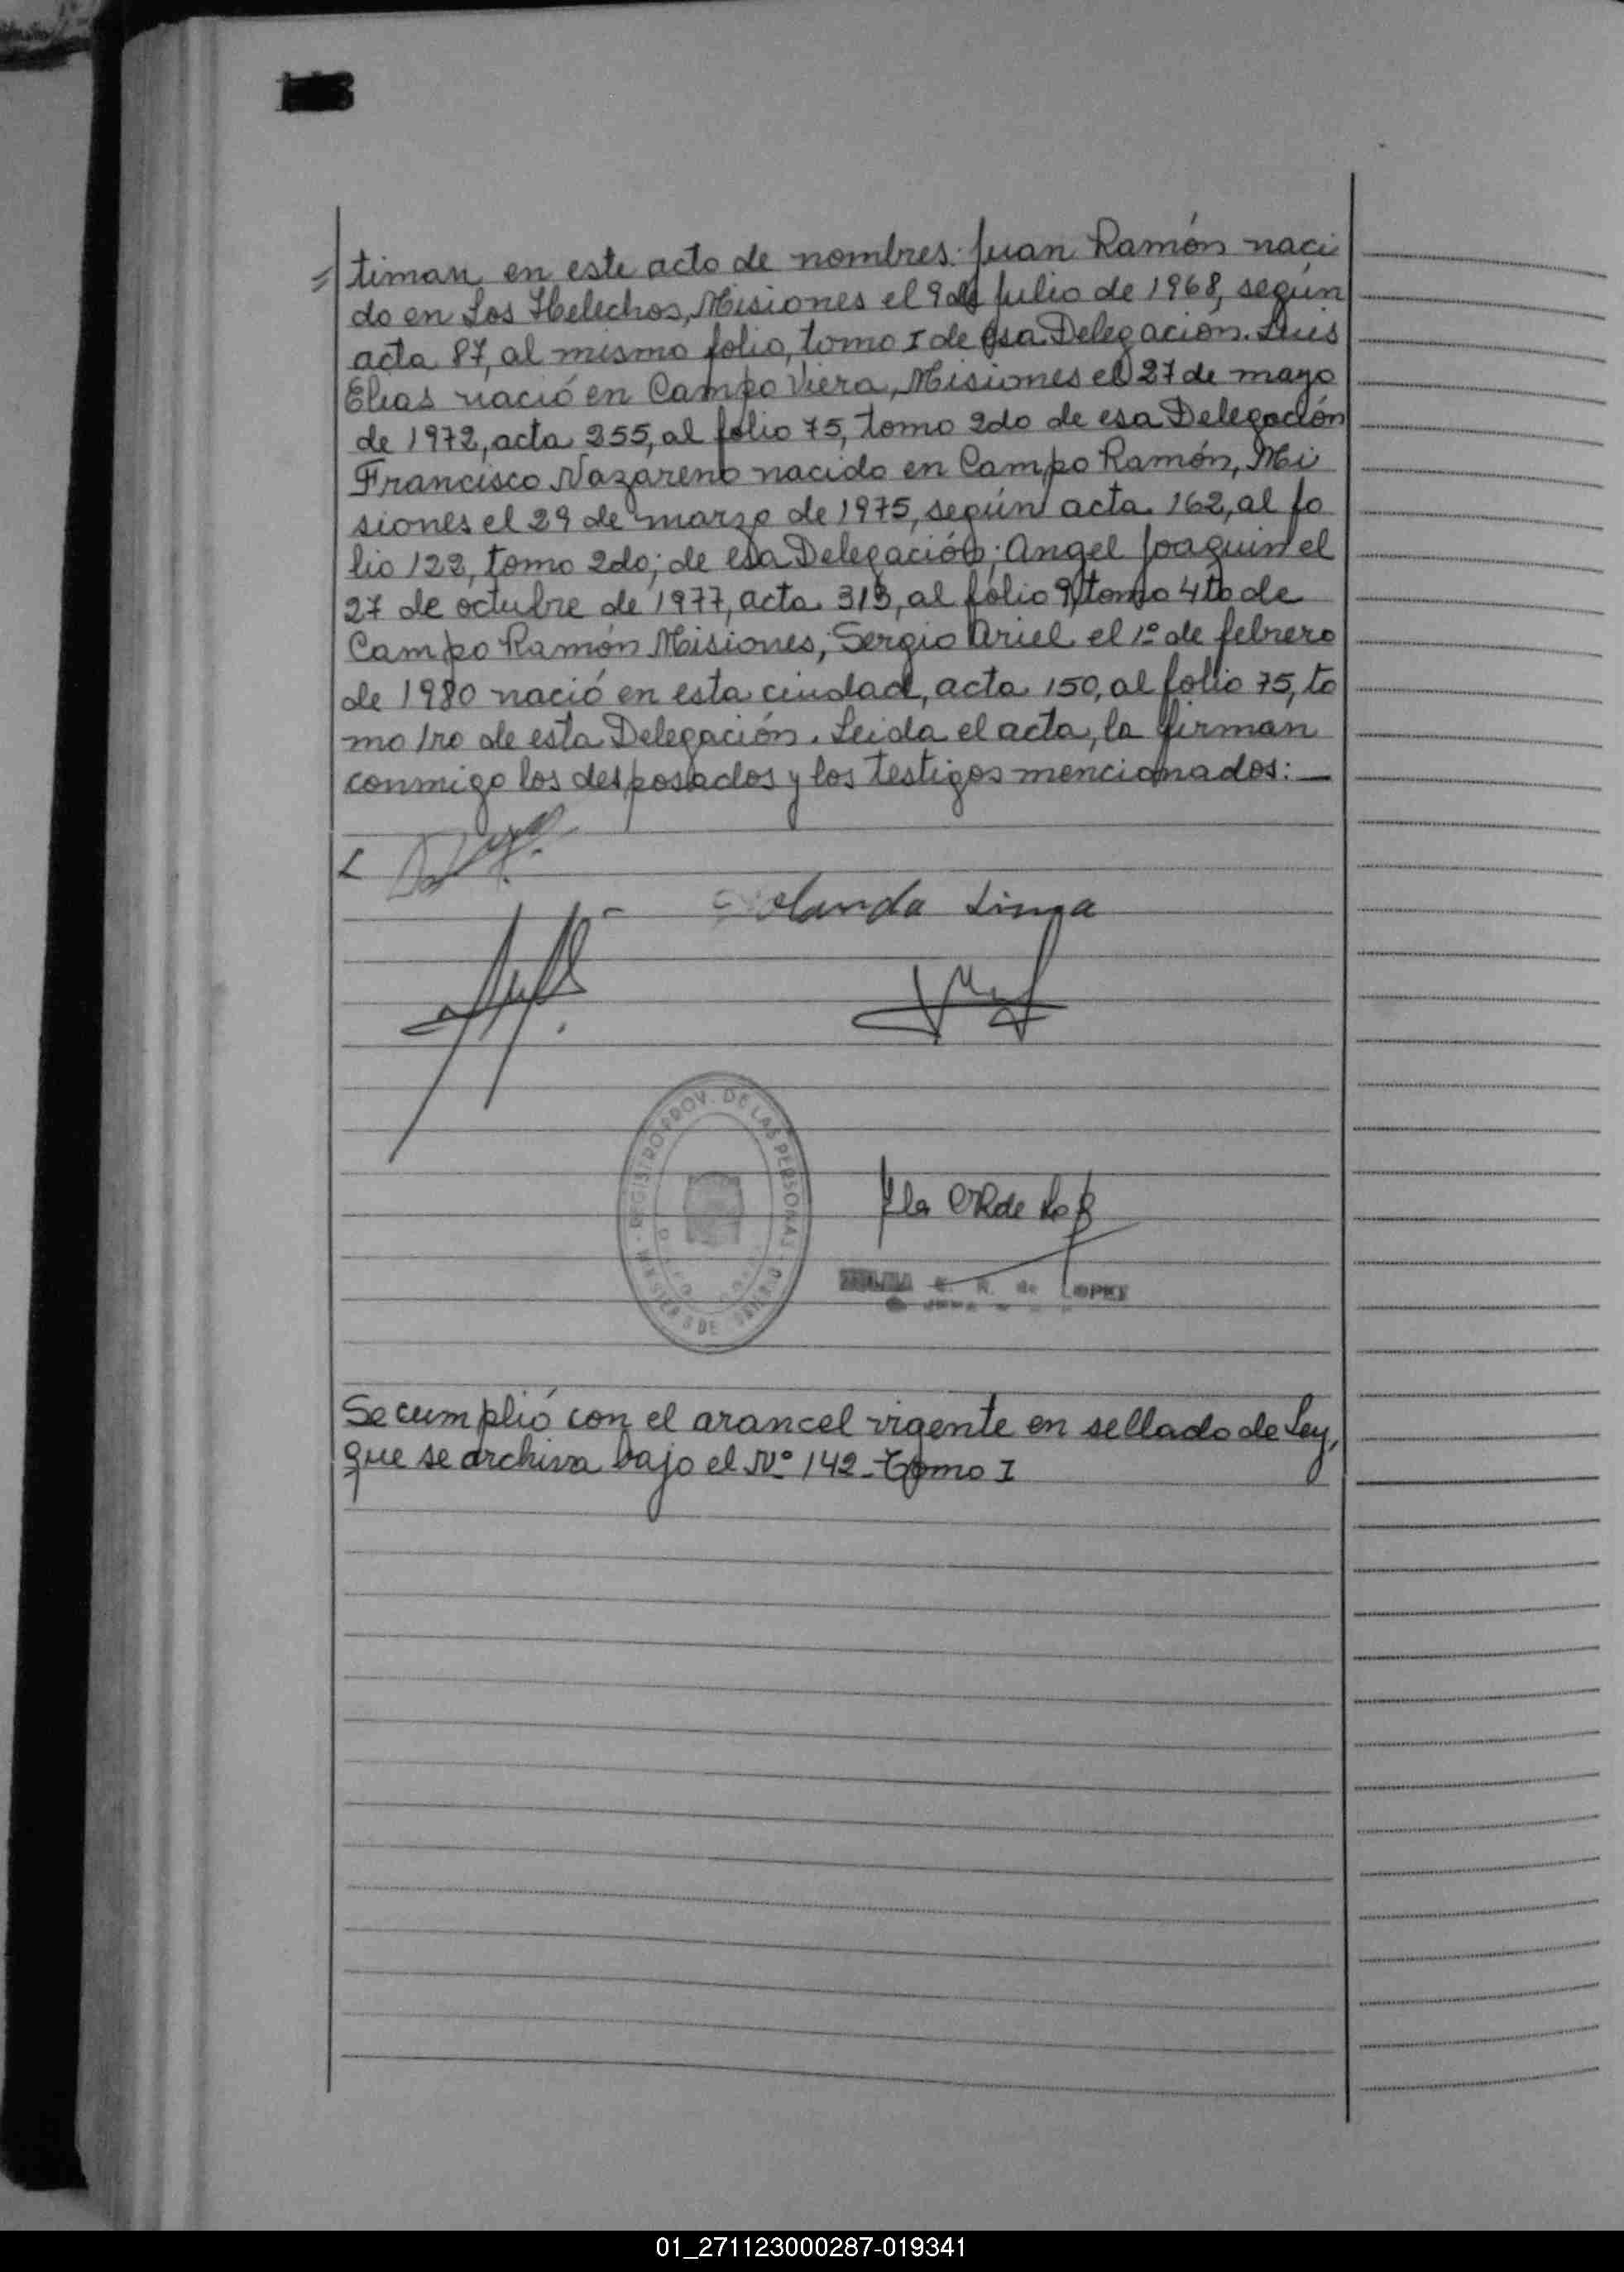 = timan en este acto de nombres: Juan Ramón naci
do en Los Helechos, Misiones el 9 de Julio de 1968, según
acta 87, al mismo folio, tomo I de esa Delegación. Luis
Elias nació en Campo Viera, Misiones el 27 de mayo
de 1972, acta 255, al folio 75, tomo 2do de esa Delegación
Francisco Nazareno nacido en Campo Ramón, Mi
siones el 29 de marzo de 1975, según acta 162, al fo
lio 122, tomo 2do; de esa Delegación; Angel Joaquin el
27 de octubre de 1977, acta 313, al folio 9, tomo 4to de
Campo Ramón Misiones; Sergio Ariel el 1º de febrero
de 1980 nació en esta ciudad, acta 150, al folio 75, to
mo 1ro de esta Delegación. Leida el acta, la firman
conmigo los desposados y los testigos mencionados: —
REGISTRO PROV. DE LAS PERSONAS
de LOPEZ
Se cumplió con el arancel vigente en sellado de Ley,
que se archiva bajo el Nº 142 - Tomo I
01_271123000287-019341